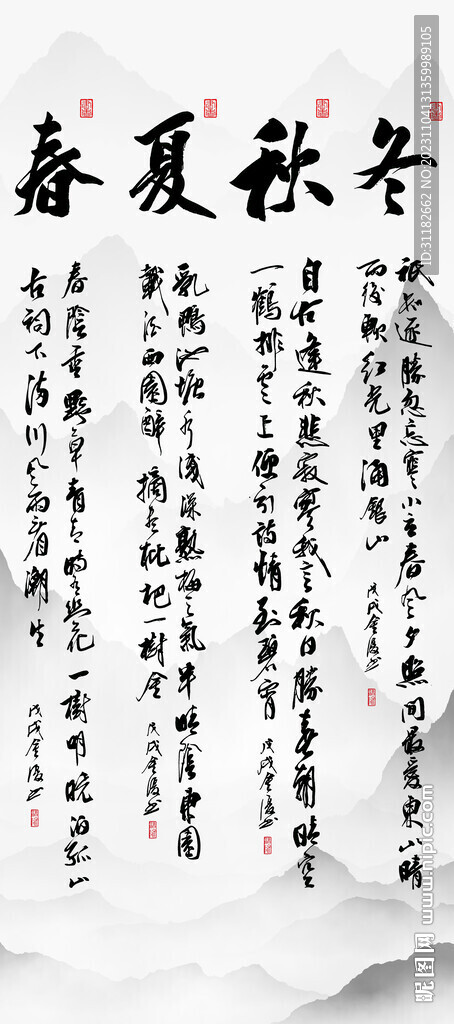 春夏秋冬
春陰垂野草青青時有幽花一樹明晚泊孤舟
古祠下满川风雨看潮生
戊戌
乳鴨池塘水浅深熟梅天氣半晴陰東園
載酒西園醉摘尽枇杷一樹金
戊戌
自古逢秋悲寂寥我言秋日勝春朝晴空
一鶴排雲上便引詩情到碧霄
戊戌
祇知逐勝忽忘寒小立春风夕照間最愛東山晴
雨後軟红光里涌銀山
戊戌
ID:31182662 NO:20231104131359989105
昵图网 www.nipic.com